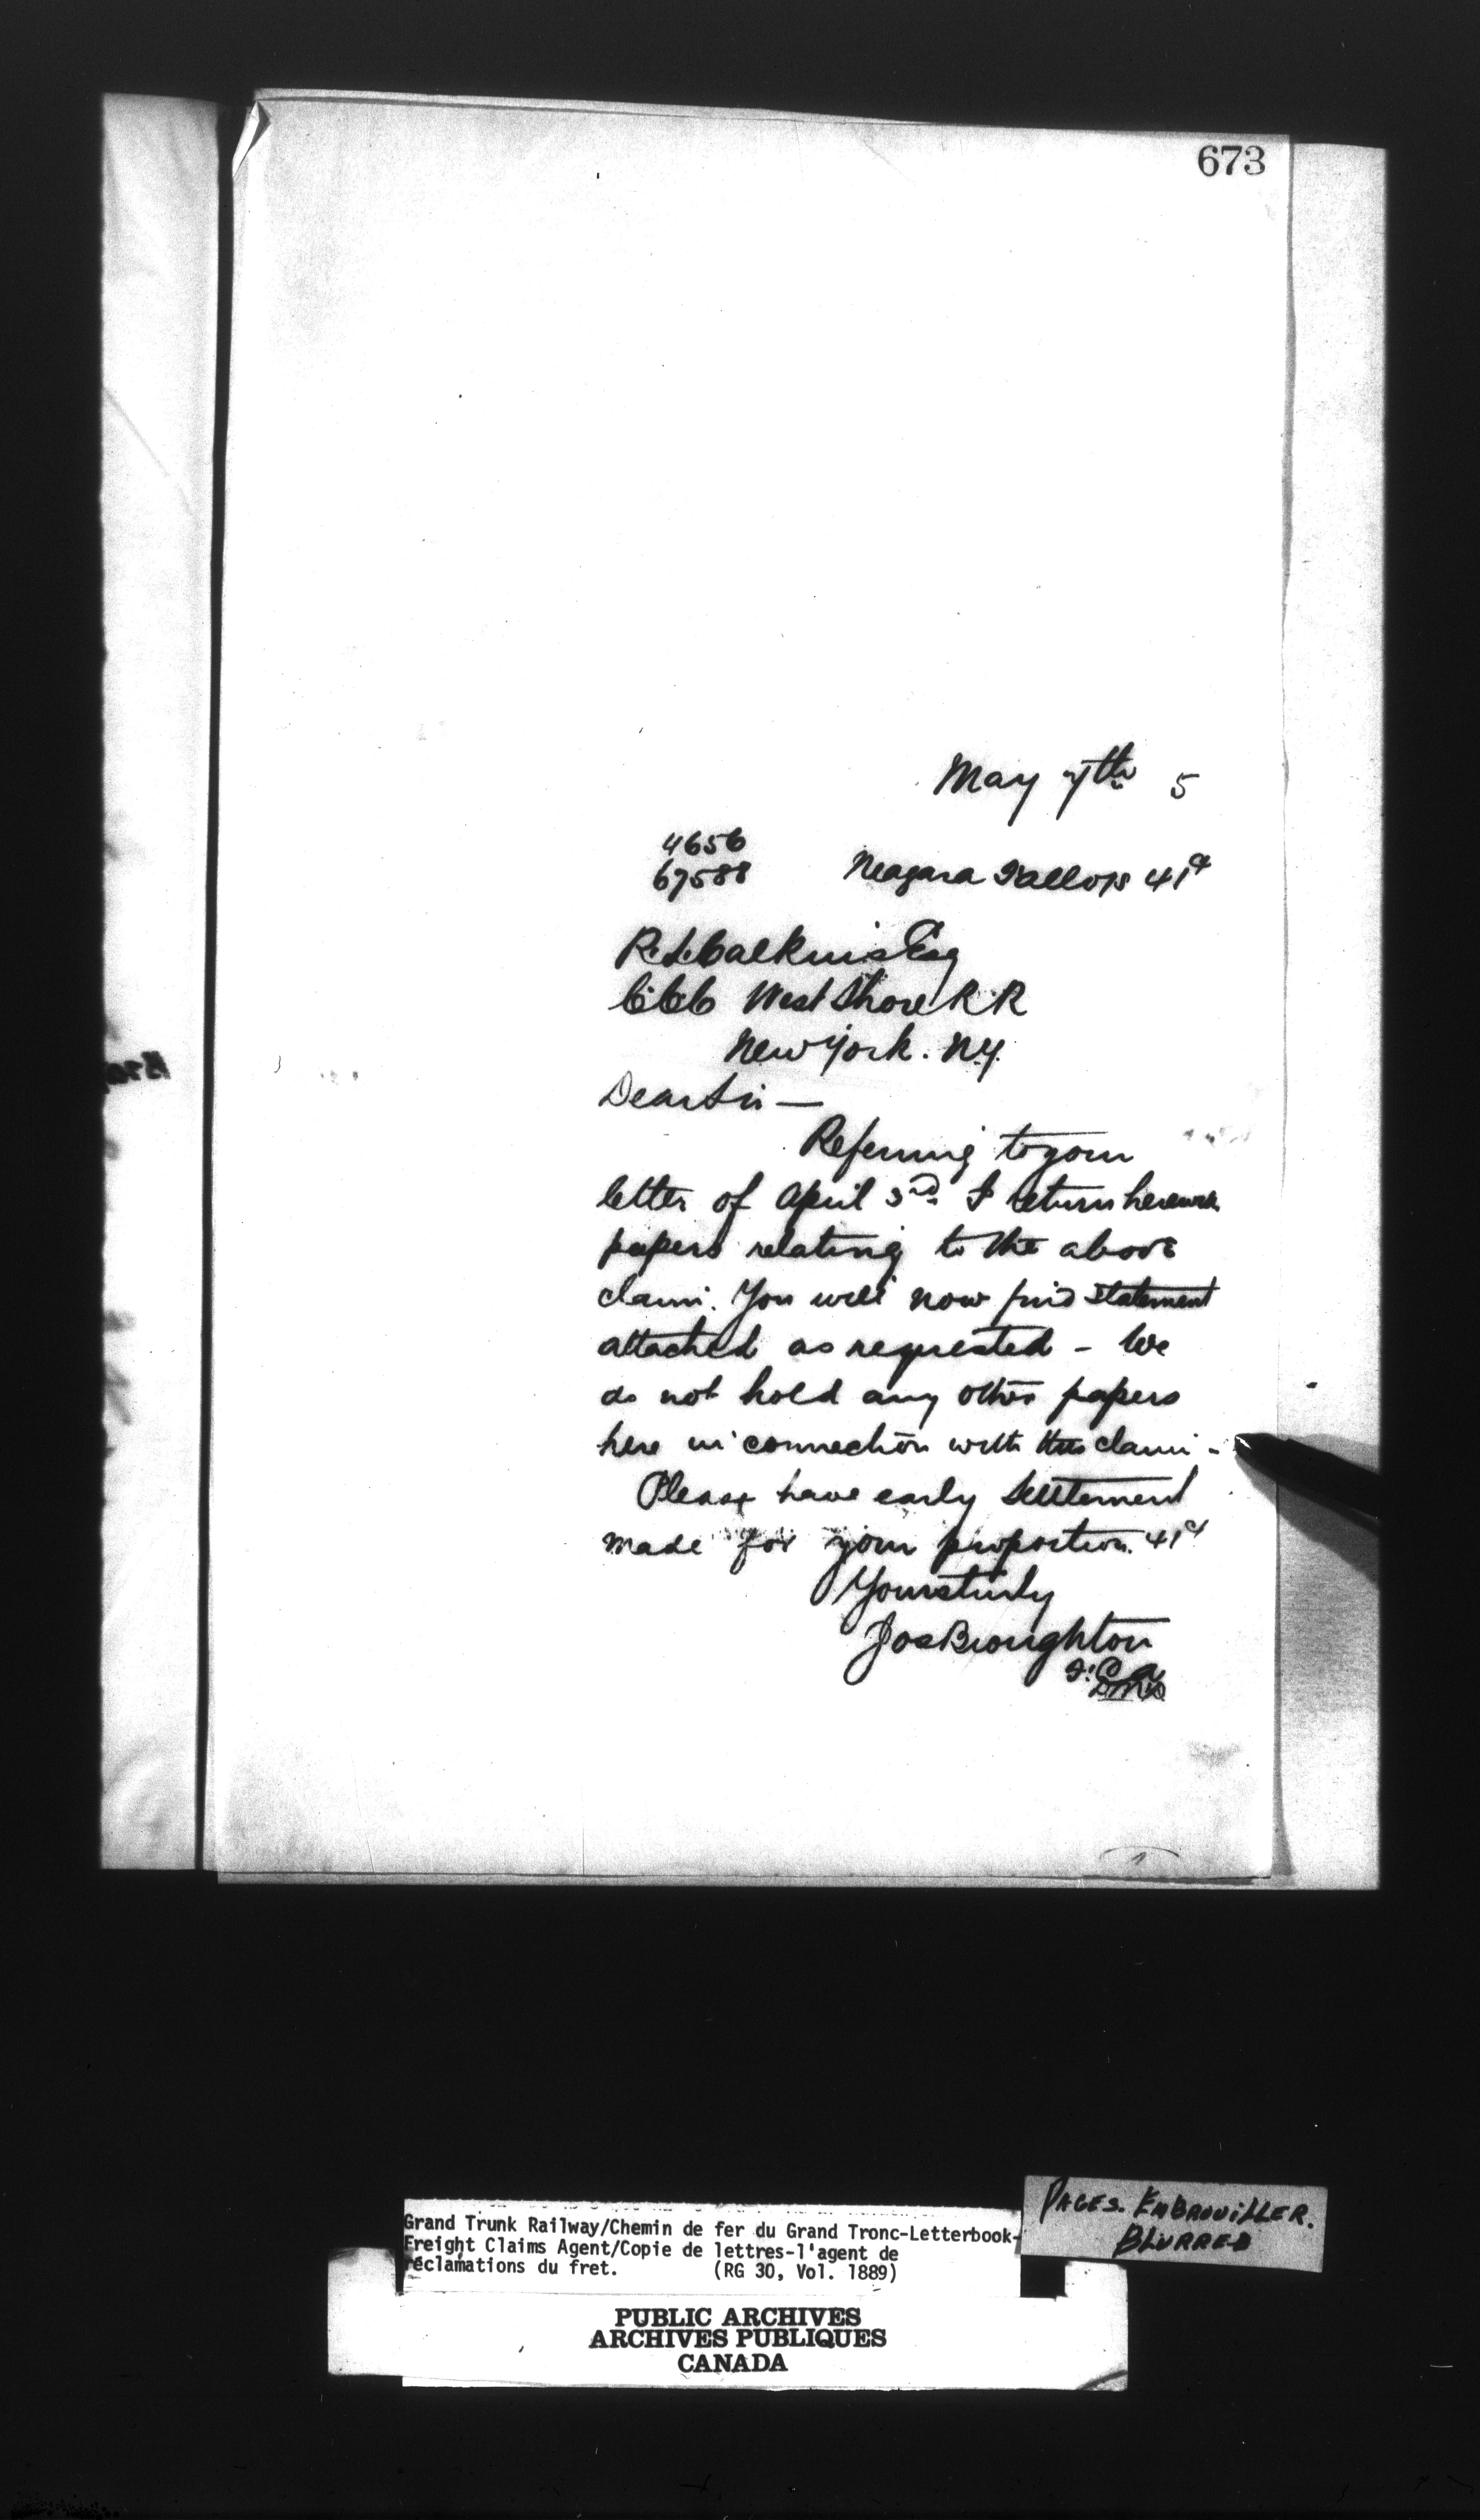 673
May 7th 5
4656
67588 Niagara Falls 41¢
R. L. Calkins Esq
C.C.C. West Shore R.R
New York. N.Y.
Dear Sir —
Referring to your
letter of April 3rd I return herewith
papers relating to the above
claim. You will now find statement
attached as requested - We
do not hold any other papers
here in connection with this claim -
Please have early settlement
made for your proportion. 41¢
Yours truly
Jos Broughton
F.C.A
Grand Trunk Railway/Chemin de fer du Grand Tronc-Letterbook-
Freight Claims Agent/Copie de lettres-l'agent de
réclamations du fret. (RG 30, Vol. 1889)
PAGES. EMBROUILLER.
BLURRED
PUBLIC ARCHIVES
ARCHIVES PUBLIQUES
CANADA